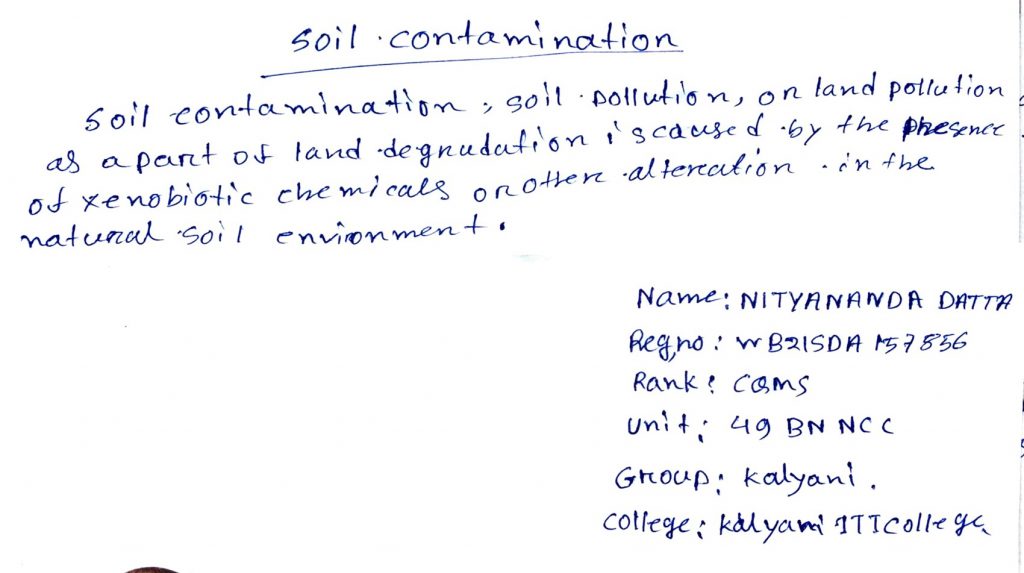 soil contamination
soil contamination, soil pollution, on land pollution
as a part of land degradation is caused by the presence
of xenobiotic chemicals or other alteration in the
natural soil environment.
Name: NITYANANDA DATTA
Reg,no: WB21SDA157856
Rank: CQMS
Unit: 49 BN NCC
Group: Kalyani.
College: Kalyani ITI College